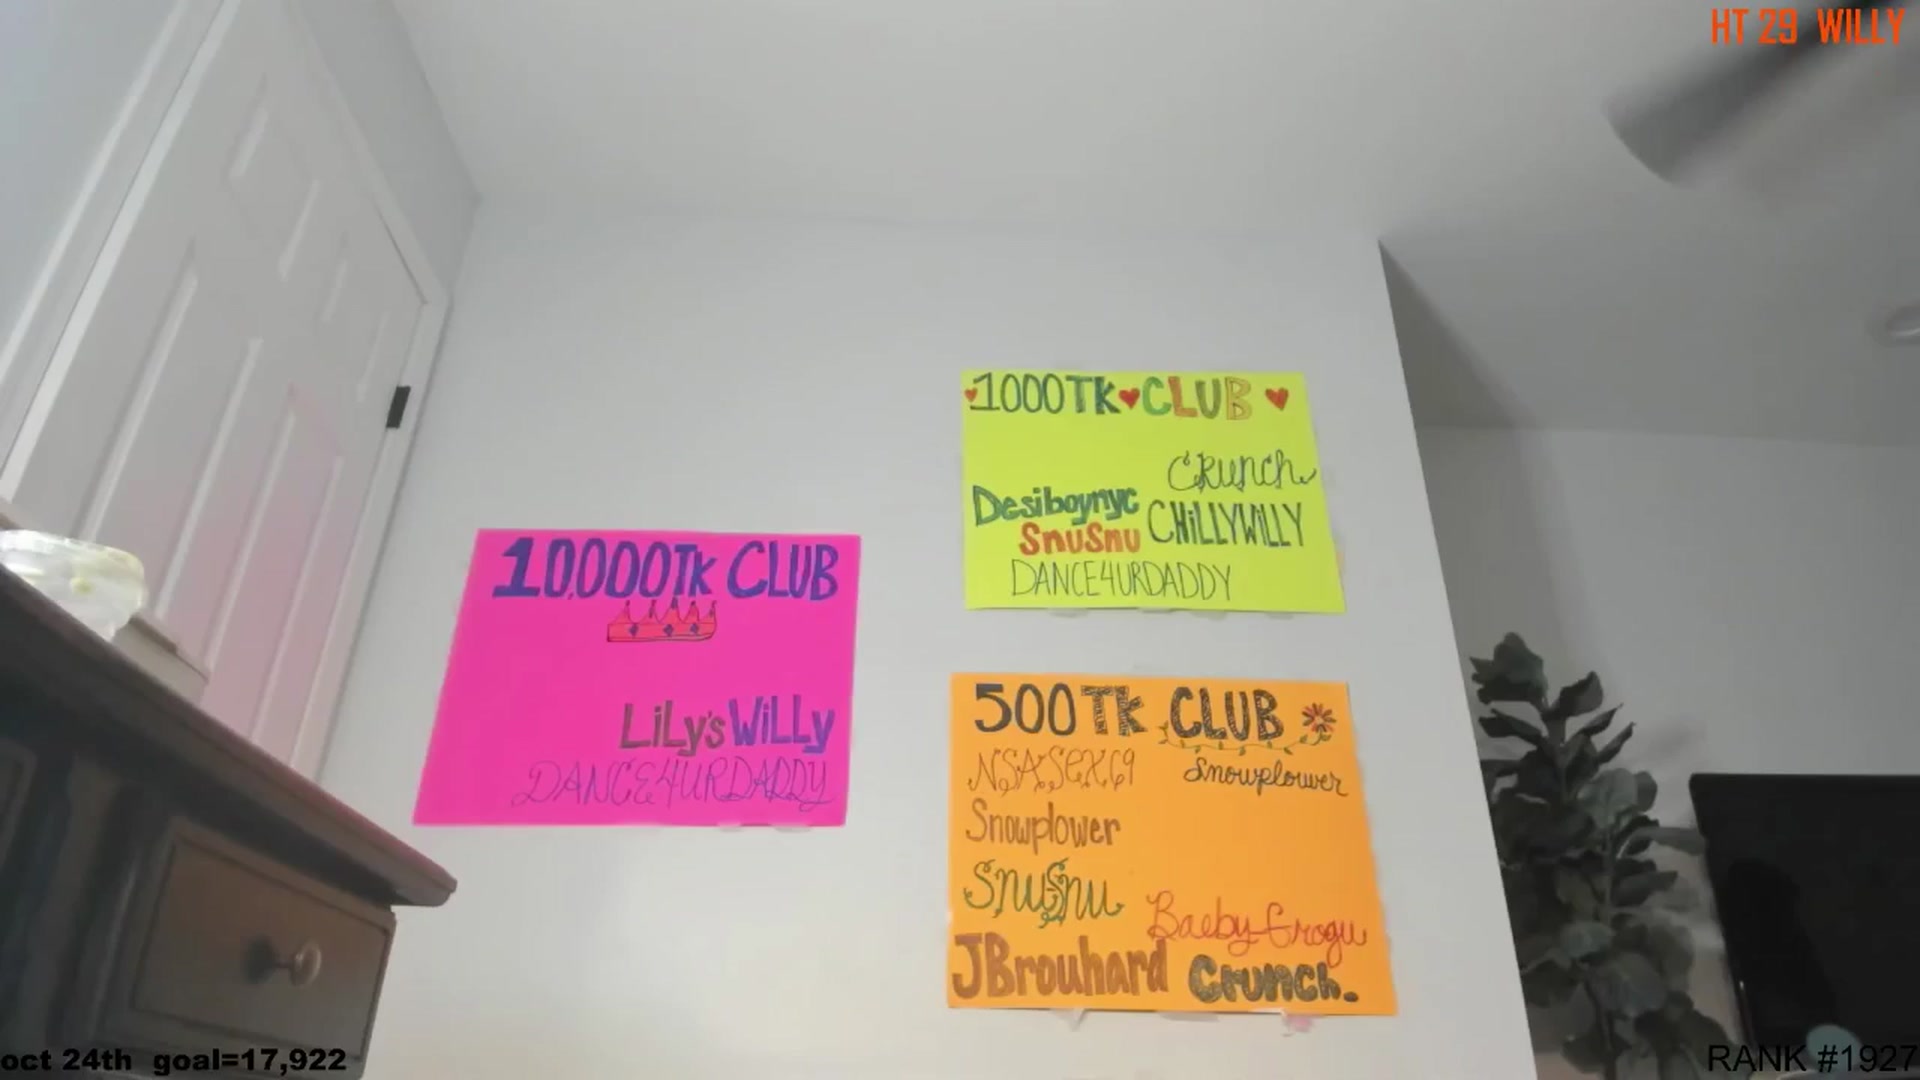 HT 29 WILLY
♥1000TK♥CLUB♥
Crunch
Desiboynyc
CHiLLYWiLLY
SnuSnu
DANCE4URDADDY
10,000TK CLUB
LiLy's WiLLy
DANCE4URDADDY
500TK CLUB
NSASEX69
Snowplower
Snowplower
SnuSnu
Baeby Grogu
JBrouhard
Crunch.
oct 24th goal=17,922
RANK #1927